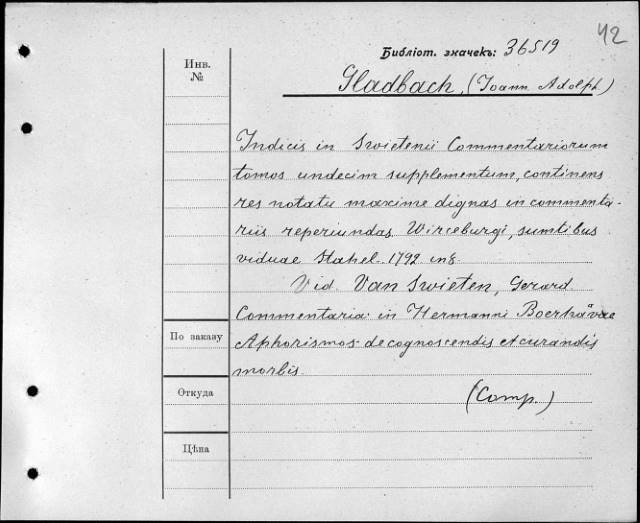 42
Библіот. значекъ: 36519
Инв.
№
Gladbach, (Ioann Adolph)
Indicis in Swietenii Commentariorum
tomos undecim supplementum, continens
res notatu maxime dignas in commenta-
riis reperiundas. Wirceburgi, sumtibus
viduae Stahel. 1792 in 8.
Vid. Van Swieten, Gerard
Commentaria in Hermanni Boerhåvae
По заказу
Aphorismos de cognoscendis et curandis
morbis.
Откуда
(Comp.)
Цѣна